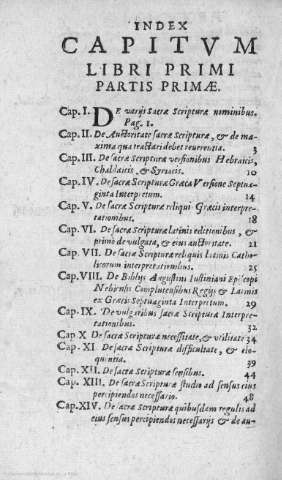 INDEX
CAPITVM
LIBRI PRIMI
PARTIS PRIMÆ.
Cap. I. DE varijs Sacræ Scripturæ nominibus.
Pag. 1.
Cap. II. De Auctoritate sacræ Scripturæ, & de ma-
xima qua tractari debet reuerentia. 3
Cap. III. De sacræ Scripturæ versionibus Hebraicis,
Chaldaicis & Syriacis. 10
Cap. IV. De sacræ Scripturæ Græca Versione Septua-
ginta Interpretum. 14
Cap. V. De sacræ Scripturæ reliquis Græcis interpre-
tationibus. 18
Cap. VI. De sacræ Scripturæ latinis editionibus, &
primò de vulgata, & eius auctoritate. 21
Cap. VII. De sacræ Scripturæ reliquis Latinis Catho-
licorum interpretationibus. 25
Cap. VIII. De Biblijs Augustini Iustiniani Episcopi
Nebiensis Complutensibus Regijs & Latinis
ex Græcis Septuaginta Interpretum. 29
Cap. IX. De vulgaribus sacræ Scripturæ Interpre-
tationibus. 32
Cap X De sacræ Scripturæ necessitate, & vtilitate 34
Cap. XI. De sacræ Scripturæ difficultate, & elo-
quentia. 39
Cap. XII. De sacræ Scripturæ sensibus. 44
Cap. XIII. De sacræ Scripturæ studio ad sensus eius
percipiendos necessario. 48
Cap. XIV. De sacræ Scripturæ quibusdam regulis ad
eius sensus percipiendos necessarijs & de au-